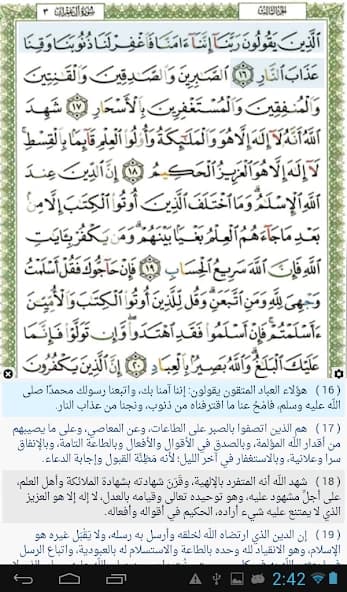 الجزء الثالث سورة آل عمران ٣
ٱلَّذِينَ يَقُولُونَ رَبَّنَآ إِنَّنَآ ءَامَنَّا فَٱغْفِرْ لَنَا ذُنُوبَنَا وَقِنَا
عَذَابَ ٱلنَّارِ ١٦ ٱلصَّٰبِرِينَ وَٱلصَّٰدِقِينَ وَٱلْقَٰنِتِينَ
وَٱلْمُنفِقِينَ وَٱلْمُسْتَغْفِرِينَ بِٱلْأَسْحَارِ ١٧ شَهِدَ
ٱللَّهُ أَنَّهُۥ لَآ إِلَٰهَ إِلَّا هُوَ وَٱلْمَلَٰٓئِكَةُ وَأُو۟لُوا۟ ٱلْعِلْمِ قَآئِمًۢا بِٱلْقِسْطِ ۚ
لَآ إِلَٰهَ إِلَّا هُوَ ٱلْعَزِيزُ ٱلْحَكِيمُ ١٨ إِنَّ ٱلدِّينَ عِندَ
ٱللَّهِ ٱلْإِسْلَٰمُ ۗ وَمَا ٱخْتَلَفَ ٱلَّذِينَ أُوتُوا۟ ٱلْكِتَٰبَ إِلَّا مِنۢ
بَعْدِ مَا جَآءَهُمُ ٱلْعِلْمُ بَغْيًۢا بَيْنَهُمْ ۗ وَمَن يَكْفُرْ بِـَٔايَٰتِ
ٱللَّهِ فَإِنَّ ٱللَّهَ سَرِيعُ ٱلْحِسَابِ ١٩ فَإِنْ حَآجُّوكَ فَقُلْ أَسْلَمْتُ
وَجْهِىَ لِلَّهِ وَمَنِ ٱتَّبَعَنِ ۗ وَقُل لِّلَّذِينَ أُوتُوا۟ ٱلْكِتَٰبَ وَٱلْأُمِّيِّـۧنَ
ءَأَسْلَمْتُمْ ۚ فَإِنْ أَسْلَمُوا۟ فَقَدِ ٱهْتَدَوا۟ ۖ وَّإِن تَوَلَّوْا۟ فَإِنَّمَا
عَلَيْكَ ٱلْبَلَٰغُ ۗ وَٱللَّهُ بَصِيرٌۢ بِٱلْعِبَادِ ٢٠ إِنَّ ٱلَّذِينَ يَكْفُرُونَ
(16) هؤلاء العباد المتقون يقولون: إننا آمنا بك، واتبعنا رسولك محمدًا صلى
الله عليه وسلم، فامْحُ عنا ما اقترفناه من ذنوب، ونجنا من عذاب النار.
(17) هم الذين اتصفوا بالصبر على الطاعات، وعن المعاصي، وعلى ما يصيبهم
من أقدار الله المؤلمة، وبالصدق في الأقوال والأفعال وبالطاعة التامة، وبالإنفاق
سرا وعلانية، وبالاستغفار في آخر الليل؛ لأنه مَظِنَّة القبول وإجابة الدعاء.
(18) شهد الله أنه المتفرد بالإلهية، وقَرَنَ شهادته بشهادة الملائكة وأهل العلم،
على أجلِّ مشهود عليه، وهو توحيده تعالى وقيامه بالعدل، لا إله إلا هو العزيز
الذي لا يمتنع عليه شيء أراده، الحكيم في أقواله وأفعاله.
(19) إن الدين الذي ارتضاه الله لخلقه وأرسل به رسله، ولا يَقْبَل غيره هو
الإسلام، وهو الانقياد لله وحده بالطاعة والاستسلام له بالعبودية، واتباع الرسل
2:42